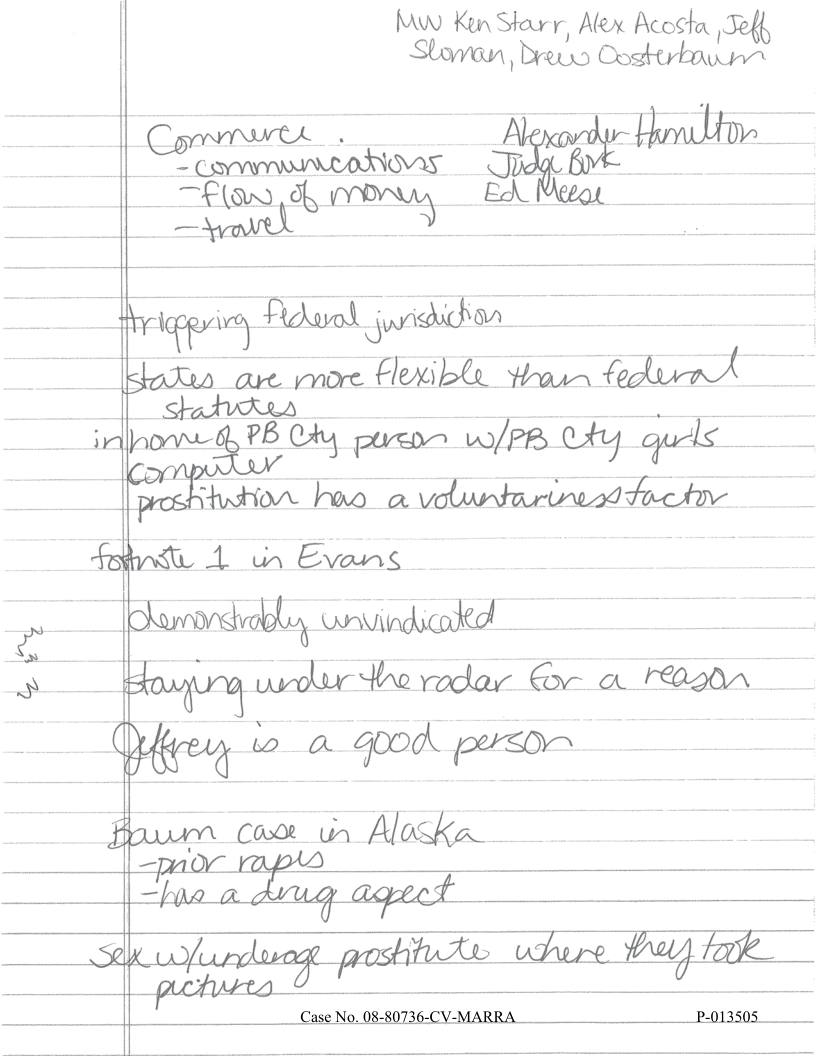 MW Ken Starr, Alex Acosta, Jeff
Sloman, Drew Oosterbaum
Commerce .
- communications
- flow of money
- travel
Alexander Hamilton
Judge Bork
Ed Meese
triggering federal jurisdiction
states are more flexible than federal
statutes
in home of PB Cty person w/PB Cty girls
computer
prostitution has a voluntariness factor
footnote 1 in Evans
demonstrably unvindicated
staying under the radar for a reason
Jeffrey is a good person
Baum case in Alaska
-prior rapes
-has a drug aspect
sex w/underage prostitute where they took
pictures
Case No. 08-80736-CV-MARRA
P-013505